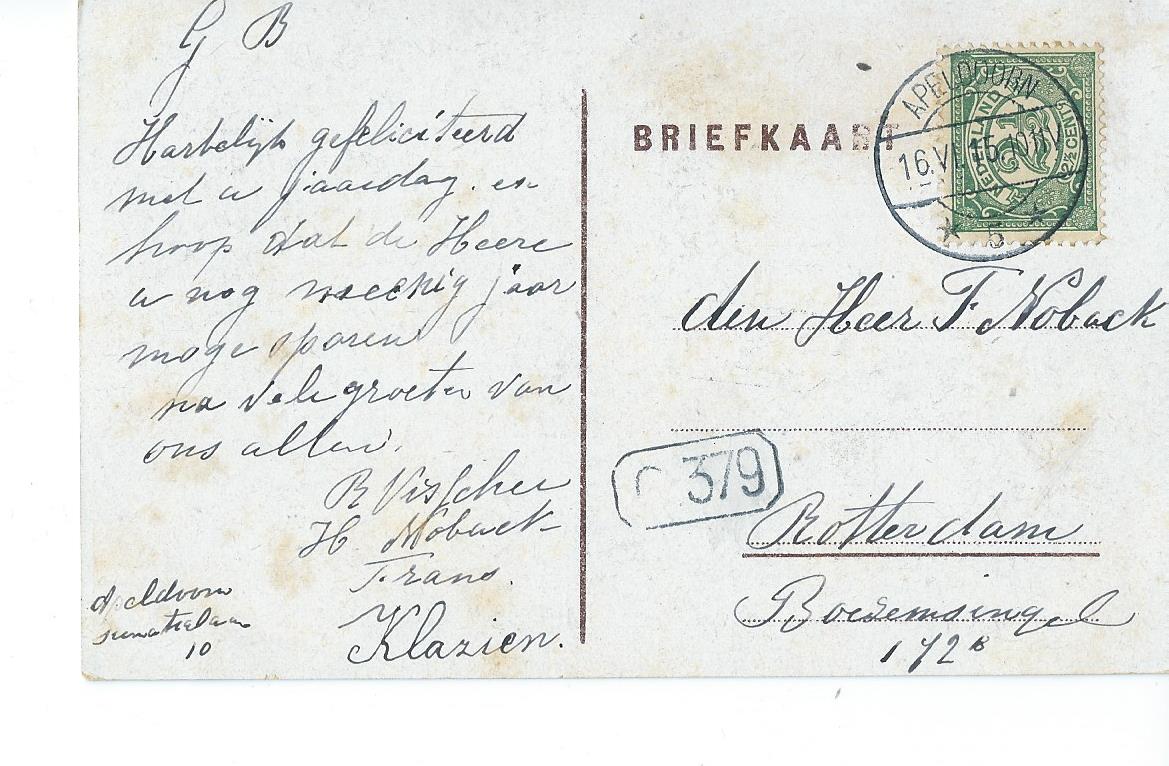 G B
Hartelijk gefeliciteerd
met u jaardag. en
hoop dat de Heere
u nog meenig jaar
moge sparen
na vele groeten van
ons allen.
R Visscher
H Noback
Frans.
Klazien.
Apeldoorn
sumatralaan
10
BRIEFKAART
APELDOORN
16.VI.15. 10-11V
5
NEDERLAND
2½
2½ CENT
den Heer F Noback
379
Rotterdam
Boezemsingel
172B